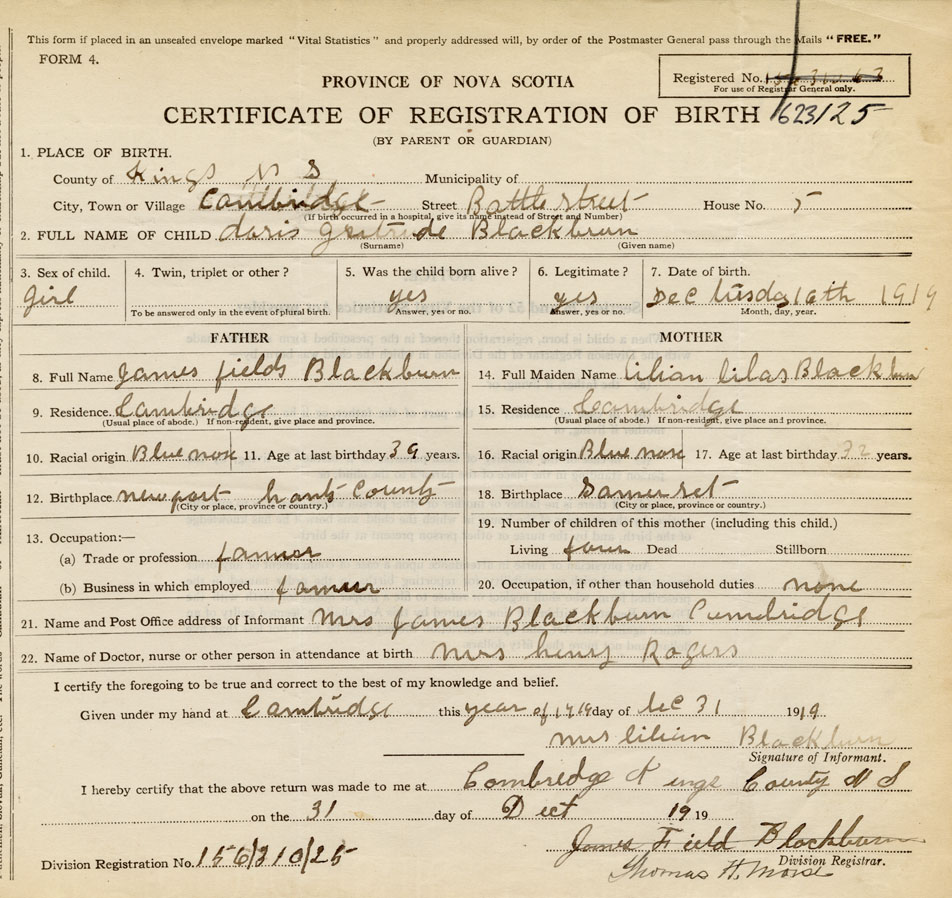 This form if placed in an unsealed envelope marked "Vital Statistics" and properly addressed will, by order of the Postmaster General pass through the Mails "FREE."
FORM 4.
Registered No.
For use of Registrar General only.
PROVINCE OF NOVA SCOTIA
CERTIFICATE OF REGISTRATION OF BIRTH 623125
(BY PARENT OR GUARDIAN)
1. PLACE OF BIRTH.
County of Kings N S Municipality of
City, Town or Village Cambridge Street Battle street House No. 5
(If birth occurred in a hospital, give its name instead of Street and Number)
2. FULL NAME OF CHILD doris Blackburn
(Surname) (Given name)
3. Sex of child. 4. Twin, triplet or other? 5. Was the child born alive? 6. Legitimate? 7. Date of birth.
Girl yes yes Dec 16th 1919
To be answered only in the event of plural birth. Answer, yes or no. Answer, yes or no. Month, day, year.
FATHER MOTHER
8. Full Name James fields Blackburn 14. Full Maiden Name lilian lilas Blackburn
9. Residence. Cambridge 15. Residence Cambridge
(Usual place of abode.) If non-resident, give place and province. (Usual place of abode.) If non-resident, give place and province.
10. Racial origin Blue nose 11. Age at last birthday 39 years. 16. Racial origin Blue nose 17. Age at last birthday 32 years.
12. Birthplace newport hants County 18. Birthplace Somerset
(City or place, province or country.) (City or place, province or country.)
19. Number of children of this mother (including this child.)
13. Occupation:—
(a) Trade or profession farmer Living four Dead Stillborn
(b) Business in which employed farmer 20. Occupation, if other than household duties none
21. Name and Post Office address of Informant Mrs James Blackburn Cambridge
22. Name of Doctor, nurse or other person in attendance at birth Mrs henry Rogers
I certify the foregoing to be true and correct to the best of my knowledge and belief.
Given under my hand at Cambridge this year of 1919 day of Dec 31 1919
Mrs lilian Blackburn
Signature of Informant.
I hereby certify that the above return was made to me at Cambridge Kings County N S
on the 31 day of Dect 1919
James Field Blackburn
Division Registrar.
Division Registration No. 156/310/25
Thomas H. Morse